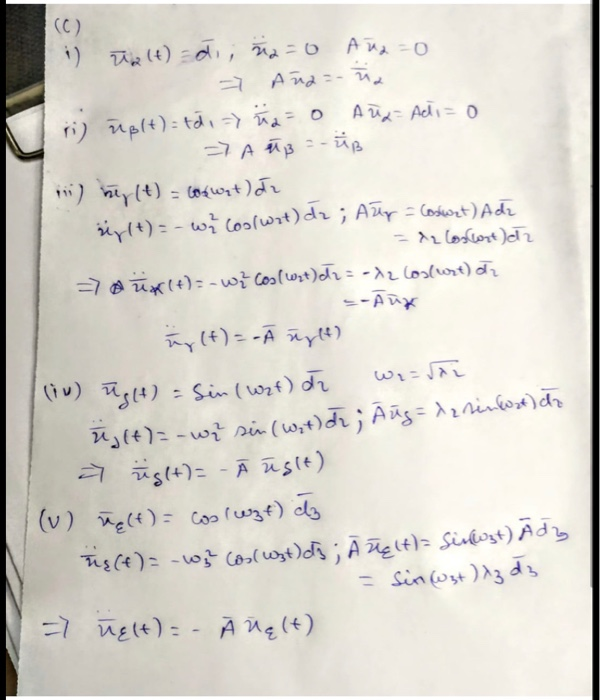 (C)
i) ū_α(t) = d̄₁ ; ü_α = 0 Aū_α = 0
⇒ Aū_α = - ü_α
ii) ū_β(t) = td̄₁ ⇒ ü_α = 0 Aū_α = Ad̄₁ = 0
⇒ A ū_β = - ü_β
iii) ū_γ(t) = cos(ω₂t) d̄₂
ü_γ(t) = - ω₂² cos(ω₂t) d̄₂ ; Aū_γ = cos(ω₂t) Ad̄₂
= λ₂ cos(ω₂t) d̄₂
⇒ ü_γ(t) = - ω₂² cos(ω₂t) d̄₂ = - λ₂ cos(ω₂t) d̄₂
= - Āū_γ
ü_γ(t) = - Ā ū_γ(t)
(iv) ū_δ(t) = Sin(ω₂t) d̄₂ ω₂ = √λ₂
ü_δ(t) = - ω₂² sin(ω₂t) d̄₂ ; Āū_δ = λ₂ sin(ω₂t) d̄₂
⇒ ü_δ(t) = - Ā ū_δ(t)
(v) ū_ε(t) = cos(ω₃t) d̄₃
ü_ε(t) = - ω₃² cos(ω₃t) d̄₃ ; Ā ū_ε(t) = Sin(ω₃t) Ā d̄₃
= Sin(ω₃t) λ₃ d̄₃
⇒ ü_ε(t) = - Ā ū_ε(t)